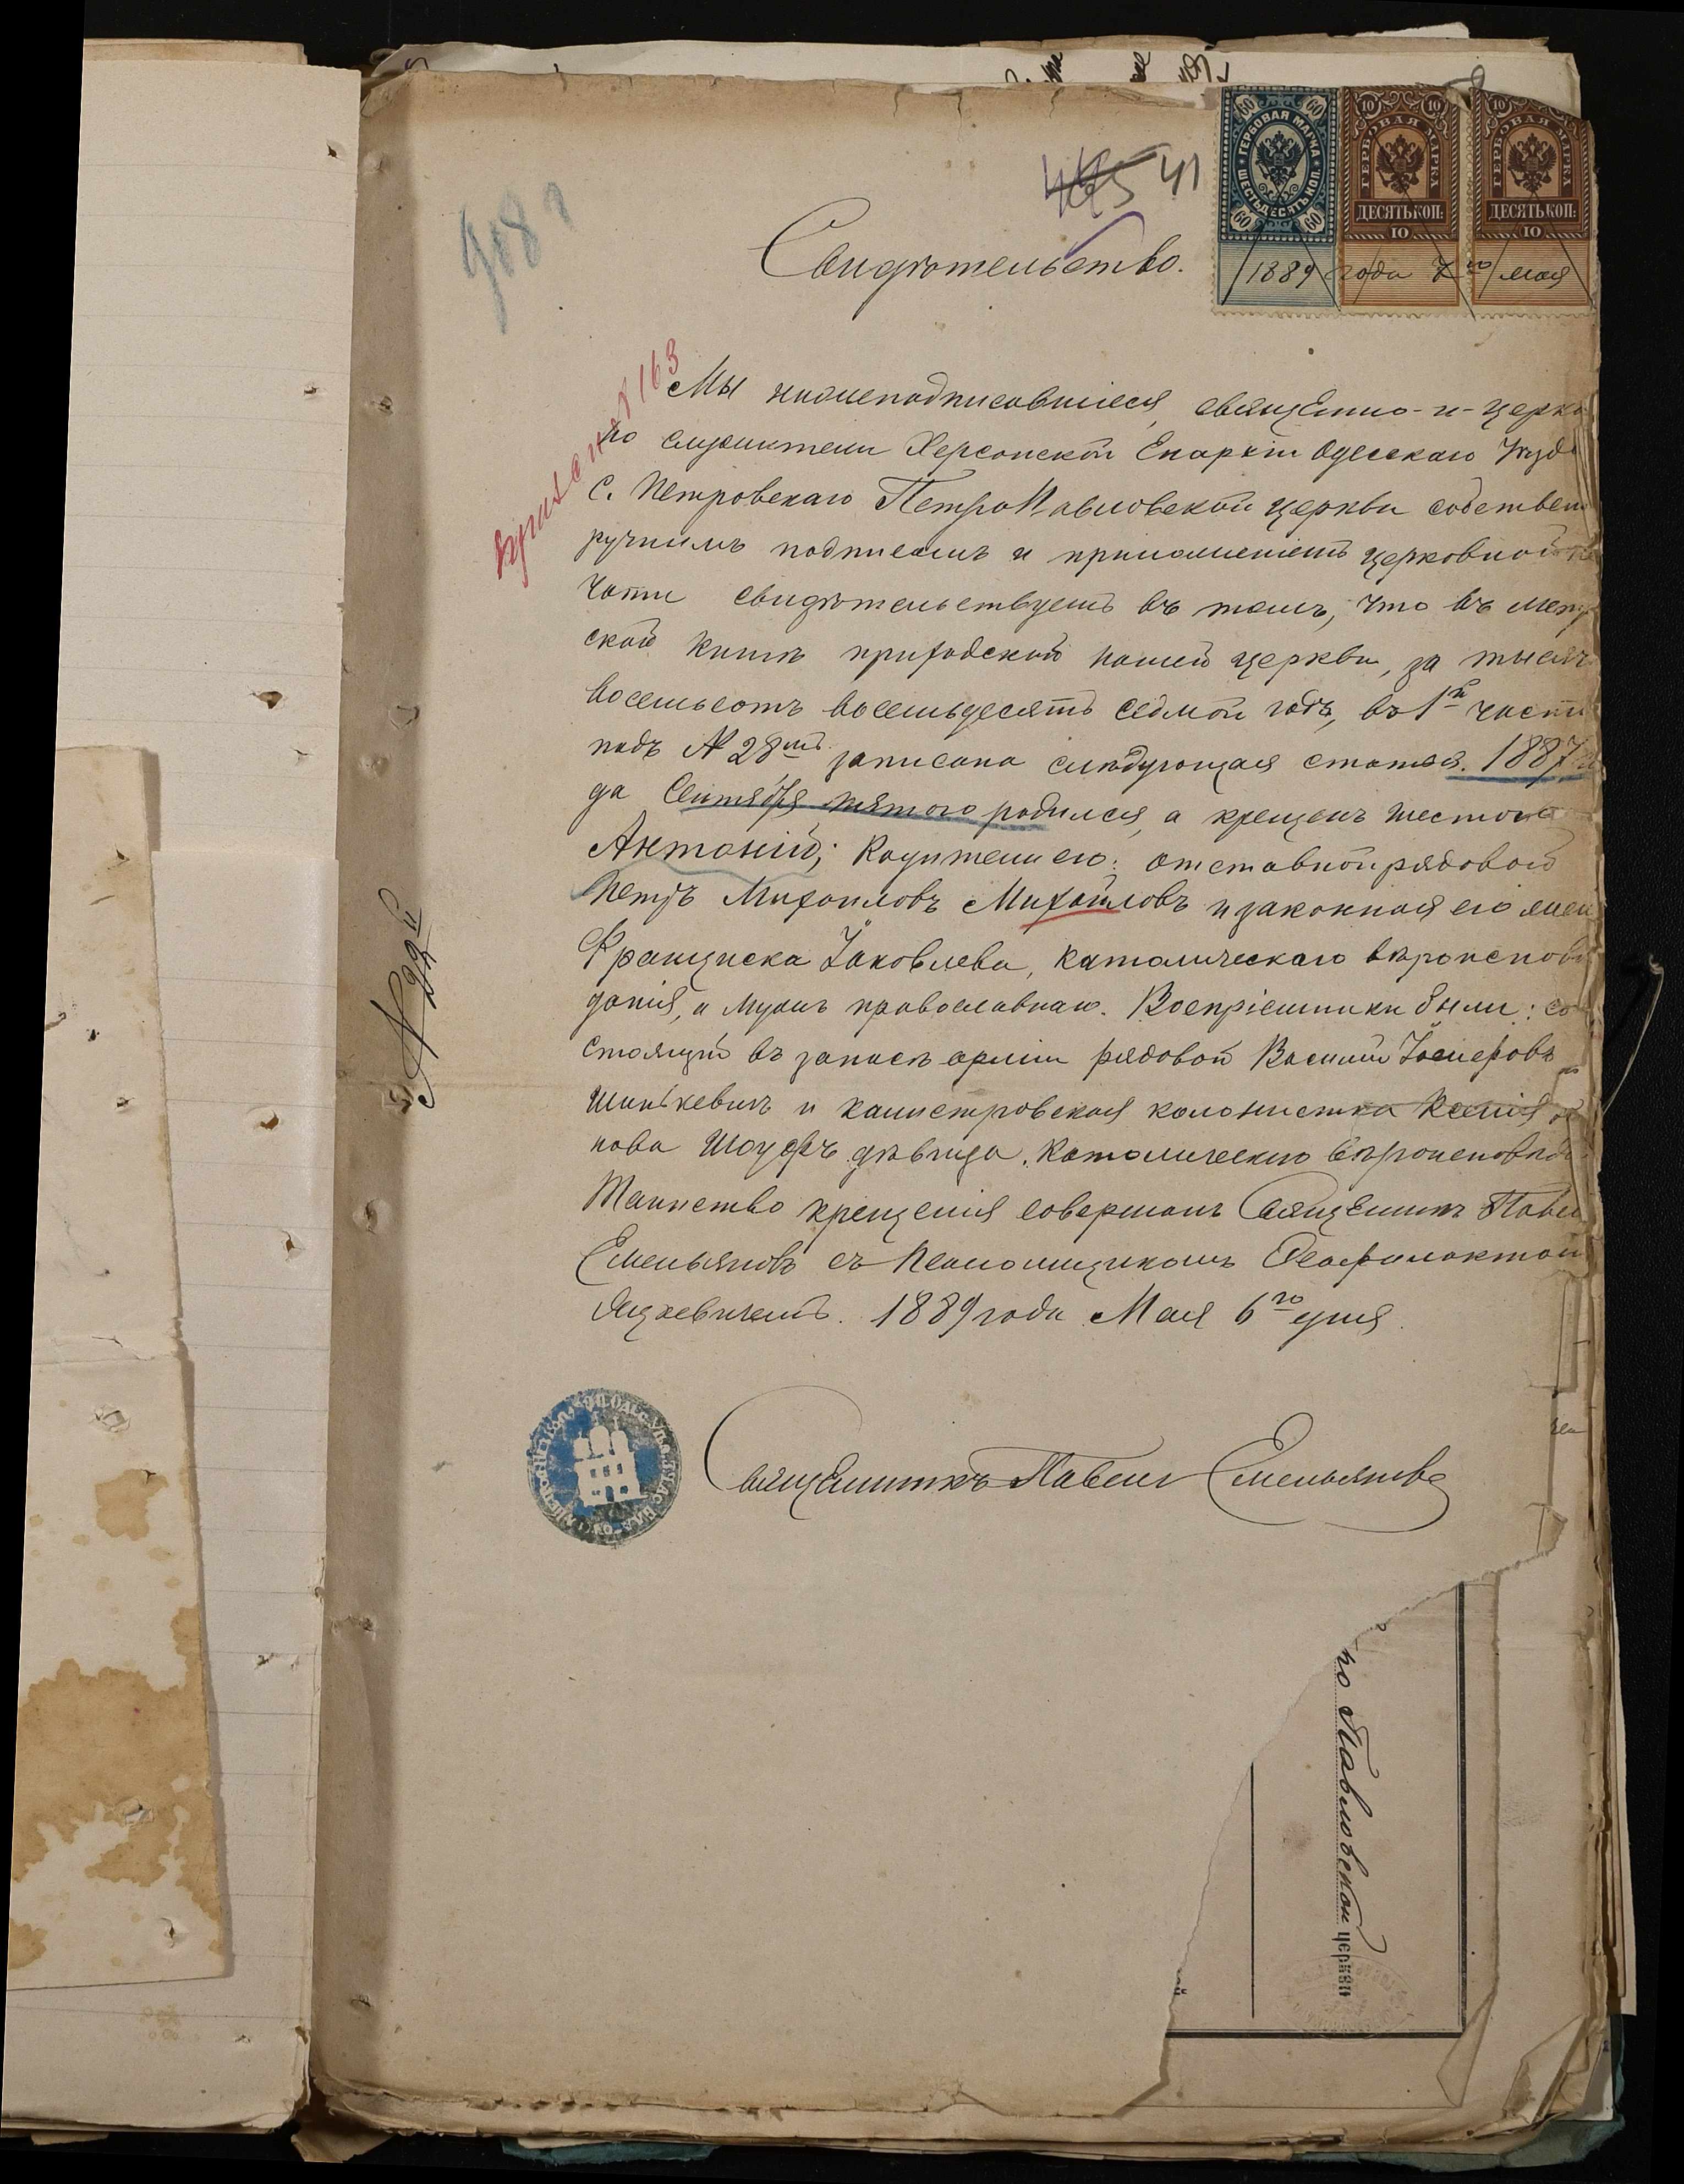 465 41
ГЕРБОВАЯ МАРКА
ШЕСТЬДЕСЯТЪ КОП.
60 60 60 60
10 10
ГЕРБОВАЯ МАРКА
ДЕСЯТЬ КОП:
10
10
ГЕРБОВАЯ МАРКА
ДЕСЯТЬ КОП:
10
1889 года 7го мая
Свидѣтельство.
Мы нижеподписавшіеся, священно-и-церко
но служители Херсонской Епархіи Одесскаго Уѣзд
С. Петровскаго ПетроПавловской церкви собствен
ручнымъ подписомъ и приложеніемъ церковной пе
чати свидѣтельствуемъ въ томъ, что въ метри
ской книгѣ приходской нашей церкви, за тысяч
восемьсотъ восемьдесятъ седмой годъ, въ 1й части
подъ № 28мъ записана слѣдующая статья. 1887 го
да Сентября пятого родился, а крещенъ шестого
Антоній; Родители его: отставной рядовой
Петръ Михаиловъ Михайловъ и законная его жен
Франциска Іаковлева, католическаго вѣроиспові
данія, а мужъ православнаго. Воспріемники были: со
стоящій въ запасѣ арміи рядовой Василій Іосифовъ
Шинькевичъ и калистровская колонистка
нова Шоуфъ дѣвица. Католическаго вѣроисповѣд
Таинство крещенія совершалъ Священникъ Павел
Емельяновъ съ Псаломщикомъ Феофилактом
Яцкевичемъ. 1889 года Мая 6го дня.
Священникъ Павелъ Емельяновъ
№ 22й
но Павловской церкви